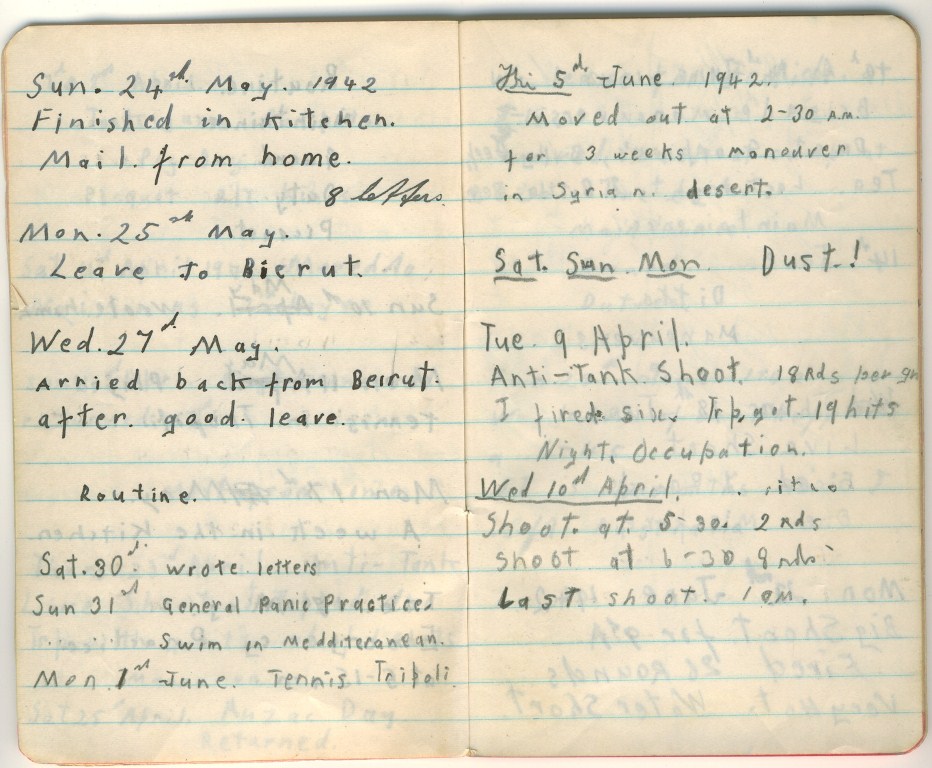 Sun. 24th May. 1942
Finished in Kitchen.
Mail. from home.
8 letters.
Mon. 25th May.
Leave to Bierut.
Wed. 27th May.
arried back from Beirut.
after. good. leave.
Routine.
Sat. 30th. wrote letters
Sun 31st General Panic Practice.
Swim in Medditeranean.
Mon. 1st June. Tennis Tripoli.
Fri 5th June. 1942.
Moved out at 2-30 A.M.
for 3 weeks maneuver
in Syrian. desert.
Sat. Sun. Mon. Dust.!
Tue. 9 April.
Anti-Tank. Shoot. 18 Rds per gn
I fired six. Trp. got. 19 hits
Night. Occupation.
Wed 10th April.
Shoot. at. 5-30. 2 rds
Shoot at 6-30 9 rds
Last shoot. 1 am.